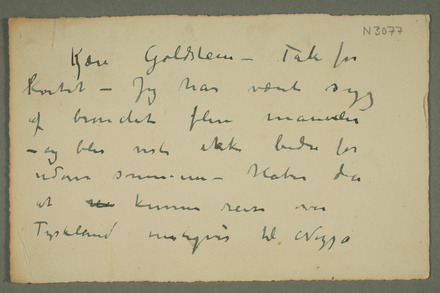 N3077
Kjære Goldstein – Tak for
Kortet – Jeg har været syg
af bronchit flere maaneder
– og blir nok ikke bedre før
udover
at kunne reise over
Tyskland muligvis til Nizza